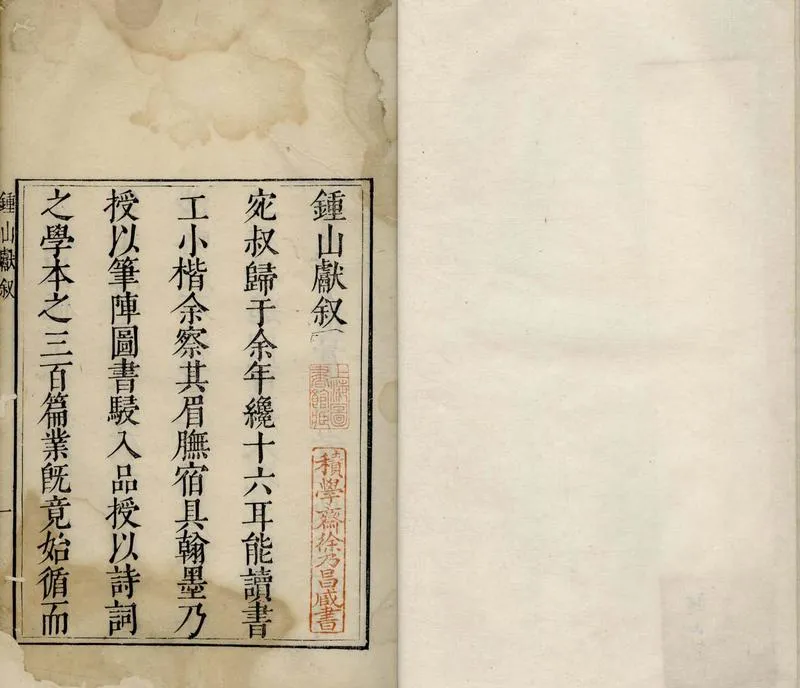 鍾山獻叙
上海圖書館藏
積學齋徐乃昌藏書
宛叔歸于余年纔十六耳能讀書
工小楷余察其眉膴宿具翰墨乃
授以筆陣圖書駸入品授以詩詞
之學本之三百篇業旣竟始循而
鍾山獻叙
一